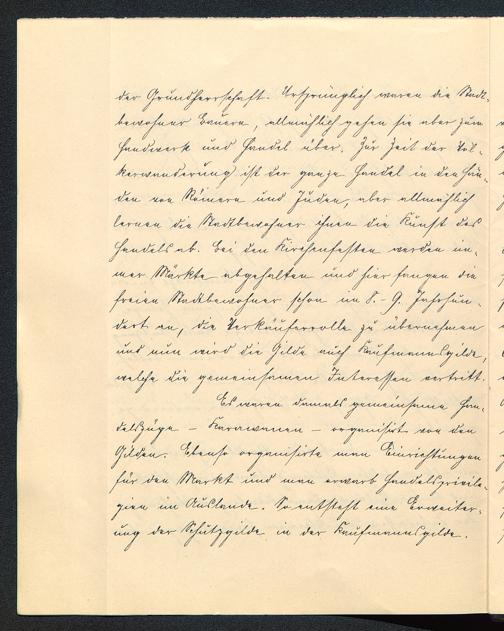 der Grundherrschaft. Ursprünglich waren die Stadt-
bewohner Bauern, allmählich gehen sie aber zum
Handwerk und Handel über. Zur Zeit der Völ-
kerwanderung ist der ganze Handel in den Hän-
den von Römern und Juden, aber allmählich
lernen die Stadtbewohner ihnen die Kunst des
Handels ab. Bei den Kirchenfesten werden im-
mer Märkte abgehalten und hier fangen die
freien Stadtbewohner schon im 8.-9. Jahrhun-
dert an, die Verkäuferrolle zu übernehmen
und nun wird die Gilde auch Kaufmannsgilde,
welche die gemeinsamen Interessen vertritt.
Es waren damals gemeinsame Han-
delszüge – Karawanen – organisirt von den
Gilden. Ebenso organisirte man Einrichtungen
für den Markt und man erwarb Handelsprivile-
gien im Auslande. So entsteht eine Erweiter-
ung der Schutzgilde in der Kaufmannsgilde.